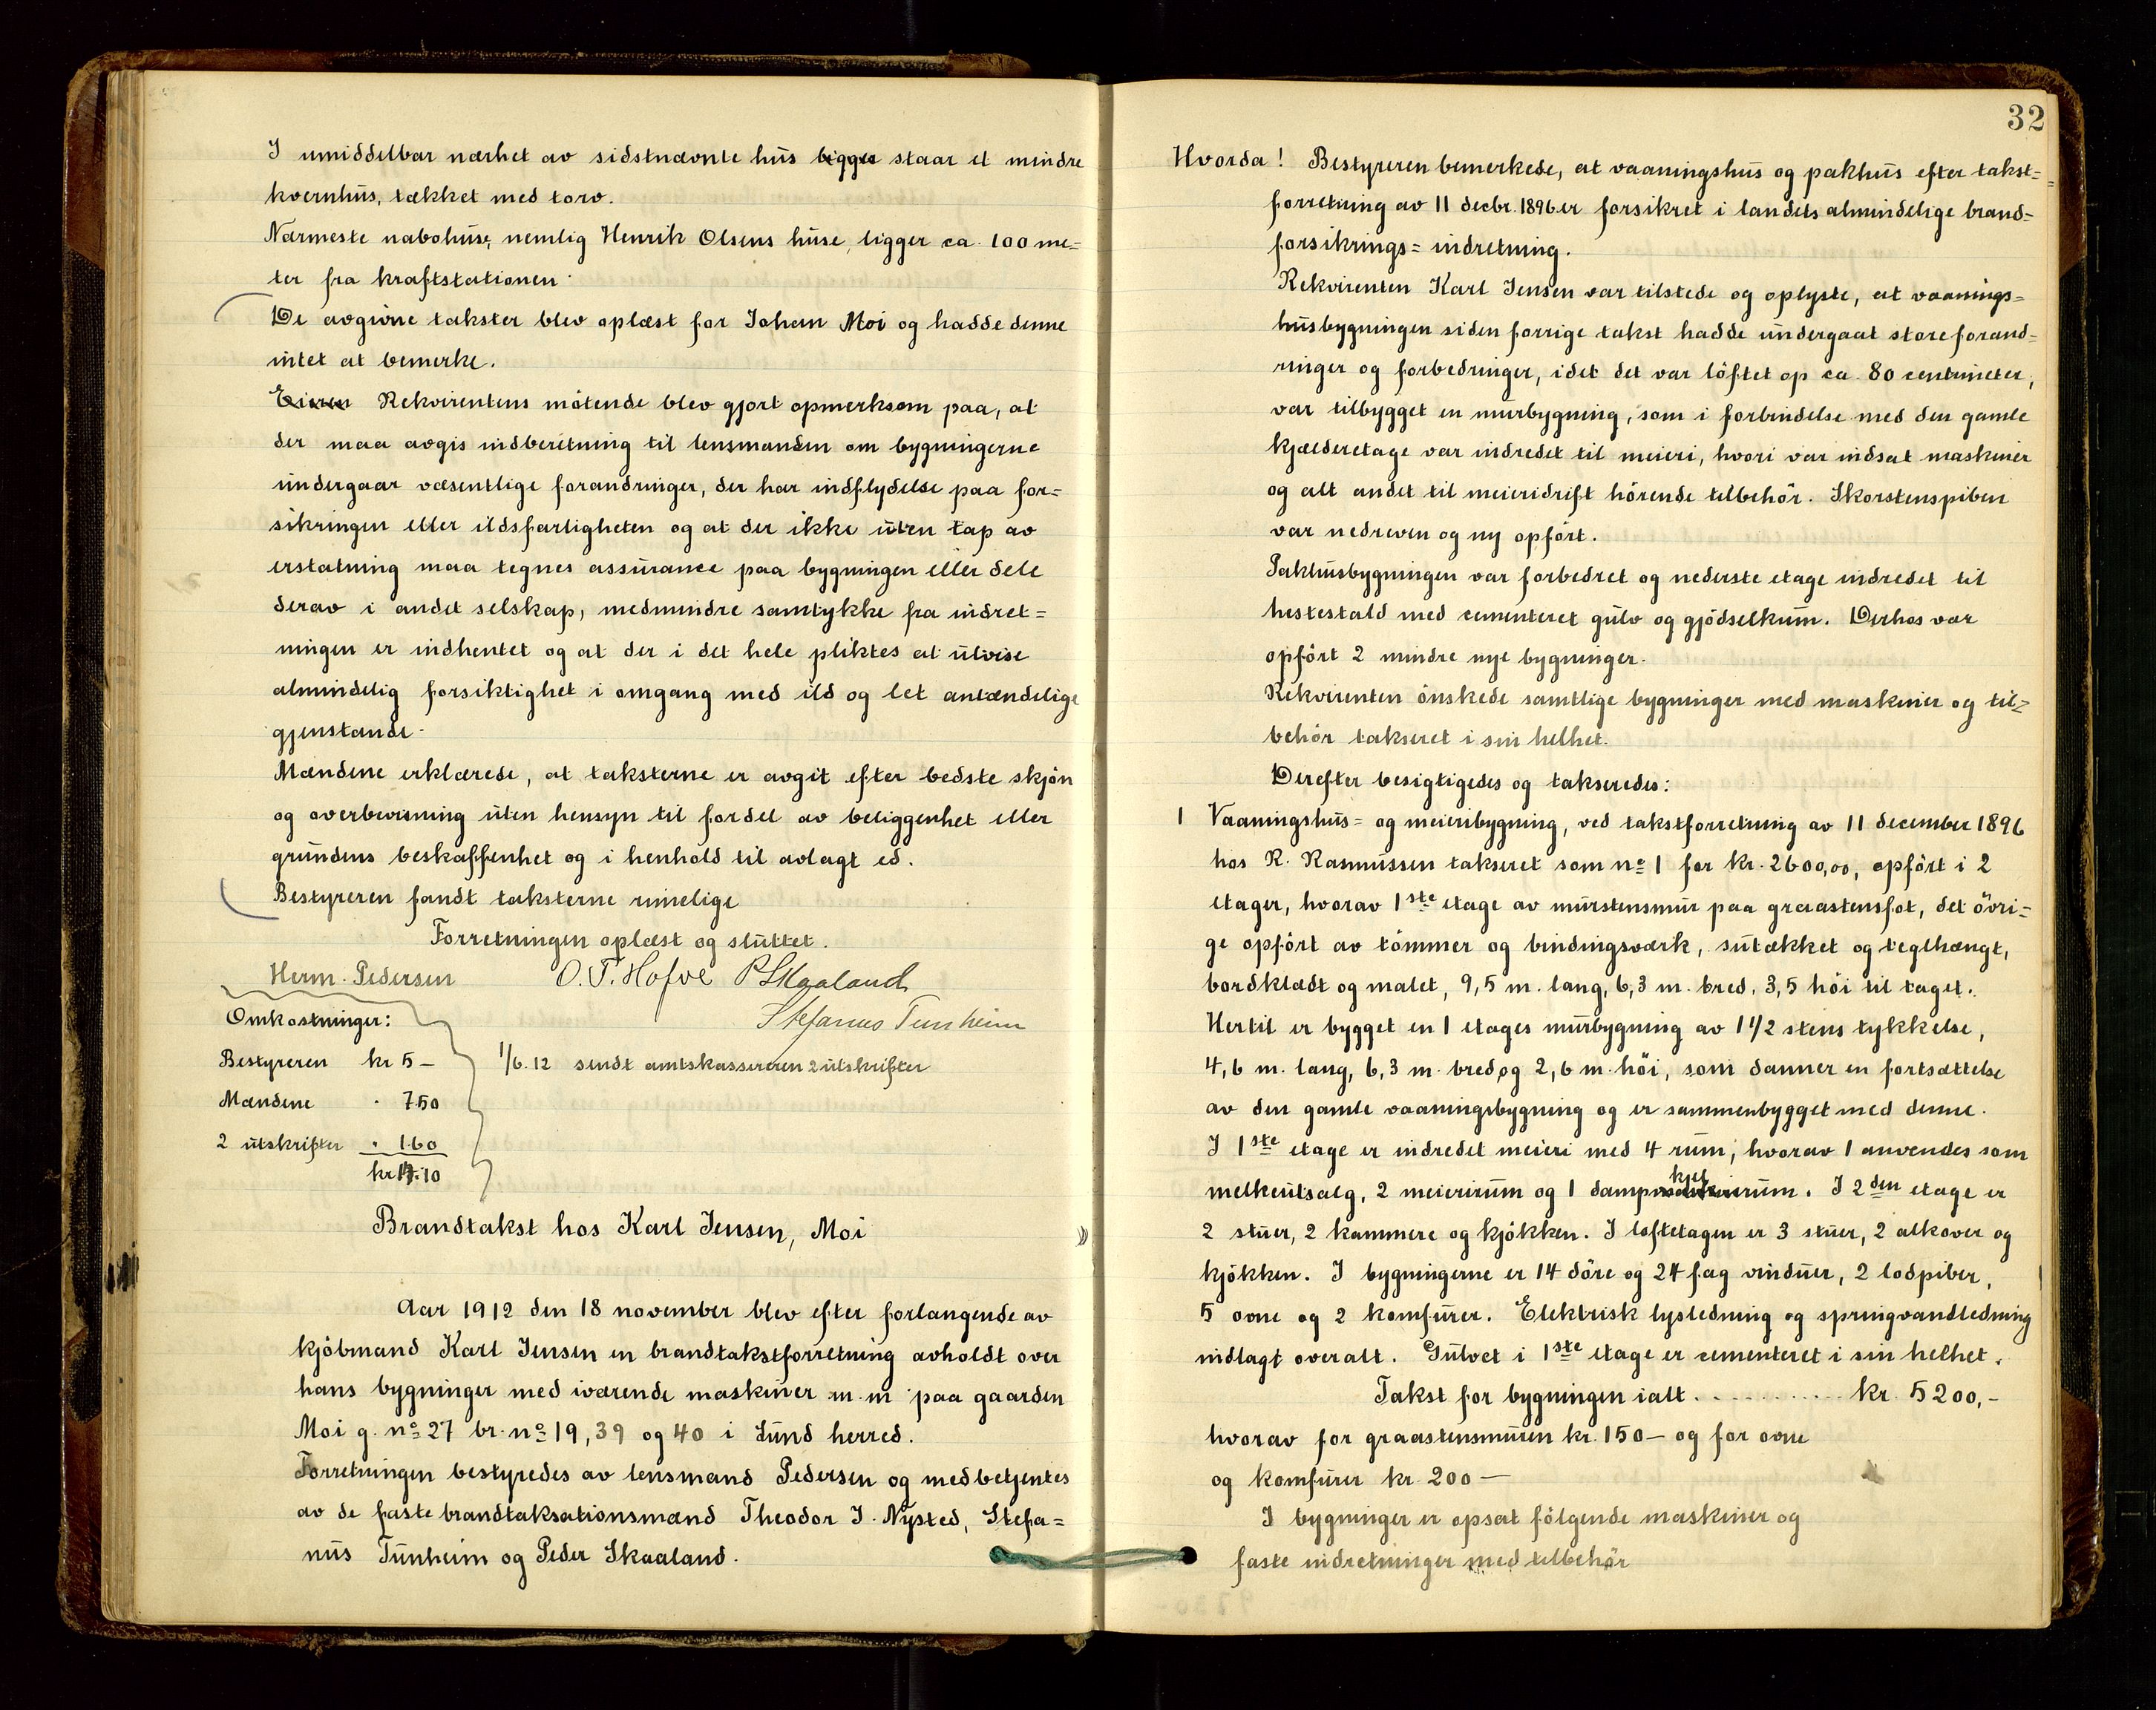 I umiddelbar nærhet av sidstnævnte hus ligger staar et mindre
kvernhus, tækket med torv.
Nærmeste nabohuse, nemlig Henrik Olsens huse, ligger ca. 100 me=
ter fra kraftstationen.
De avgivne takster blev oplæst for Johan Moi og hadde denne
intet at bemerke.
Eieren Rekvirentens mötende blev gjort opmerksom paa, at
der maa avgis indberetning til lensmanden om bygningerne
undergaar væsentlige forandringer, der har indflydelse paa for=
sikringen eller ildsfarligheten og at der ikke uten tap av
erstatning maa tegnes assurance paa bygningen eller dele
derav i andet selskap, medmindre samtykke fra indret=
ningen er indhentet og at der i det hele pliktes at utvise
almindelig forsiktighet i omgang med ild og let antændelige
gjenstande.
Mændene erklærede, at taksterne er avgit efter bedste skjön
og overbevisning uten hensyn til fordel av beliggenhet eller
grundens beskaffenhet og i henhold til avlagt ed.
Bestyreren fandt taksterne rimelige
Forretningen oplæst og sluttet.
Herm. Pedersen O. T. Hofve P Skaaland
Stefanus Tunheim
Omkostninger:
Bestyreren kr 5 –
Mændene " 7.50
2 utskrifter " 1.60
kr 14.10
1/6.12 sendt amtskassereren 2 utskrifter
Brandtakst hos Karl Jensen, Moi
Aar 1912 den 18 november blev efter forlangende av
kjöbmand Karl Jensen en brandtakstforretning avholdt over
hans bygninger med iværende maskiner m. m paa gaarden
Moi g. no 27 br. no 19, 39 og 40 i Lund herred.
Forretningen bestyredes av lensmand Pedersen og medbetjentes
av de faste brandtaksationsmænd Theodor J. Nysted, Stefa=
nus Tunheim og Peder Skaaland.
32
Hvorda! Bestyreren bemerkede, at vaaningshus og pakhus efter takst=
forretning av 11 decbr. 1896 er forsikret i landets almindelige brand=
forsikrings=indretning.
Rekvirenten Karl Jensen var tilstede og oplyste, at vaanings=
husbygningen siden forrige takst hadde undergaat store forand=
ringer og forbedringer, idet det var löftet op ca. 80 centimeter,
var tilbygget en murbygning, som i forbindelse med den gamle
kjælderetage var indredet til meieri, hvori var indsat maskiner
og alt andet til meieridrift hörende tilbehör. Skorstenspiben
var nedreven og ny opfört.
Pakhusbygningen var forbedret og nederste etage indredet til
hestestald med cementeret gulv og gjödselkum. Derhos var
opfört 2 mindre nye bygninger.
Rekvirenten önskede samtlige bygninger med maskiner og til=
behör takseret i sin helhet.
Derefter besigtigedes og takseredes:
1 Vaaningshus= og meieribygning, ved takstforretning av 11 december 1896
hos R. Rasmussen takseret som no 1 for kr. 2600,00, opfört i 2
etager, hvorav 1ste etage av murstensmur paa graastensfot, det övri=
ge opfört av tömmer og bindingsværk, sutækket og teglhængt,
bordklædt og malet, 9,5 m. lang, 6,3 m. bred, 3,5 höi til taget.
Hertil er bygget en 1 etages murbygning av 1 1/2 stens tykkelse,
4,6 m. lang, 6,3 m. bred og 2,6 m. höi, som danner en fortsættelse
av den gamle vaaningsbygning og er sammenbygget med denne.
I 1ste etage er indredet meieri med 4 rum, hvorav 1 anvendes som
melkeutsalg, 2 meierirum og 1 dampkjelrum. I 2den etage er
2 stuer, 2 kammere og kjökken. I loftetagen er 3 stuer, 2 alkover og
kjökken. I bygningerne er 14 döre og 24 fag vinduer, 2 lodpiber,
5 ovne og 2 komfurer. Elektrisk lysledning og springvandledning
indlagt overalt. Gulvet i 1ste etage er cementeret i sin helhet.
Takst for bygningen ialt . . . . . . . . . . kr. 5200,–
hvorav for graastensmuren kr. 150 – og for ovne
og komfurer kr 200 –
I bygninger er opsat fölgende maskiner og
faste indretninger med tilbehör